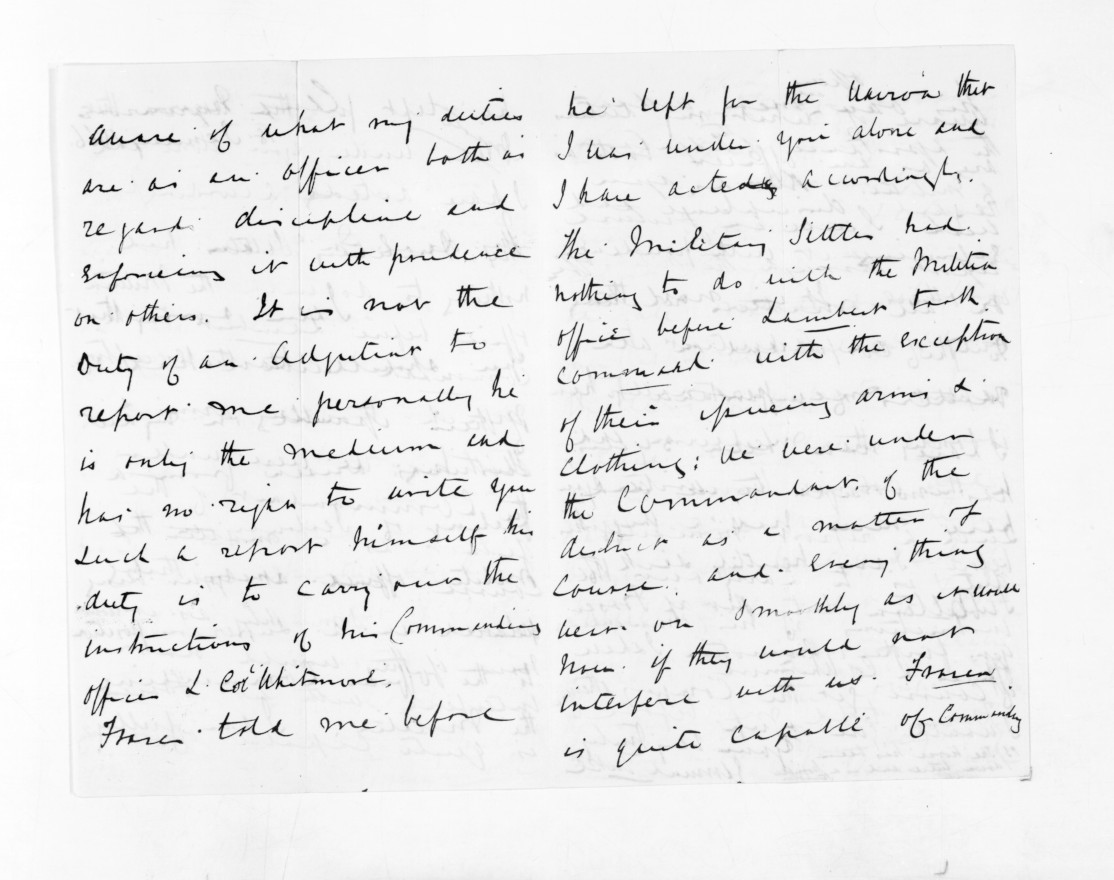 aware of what my duties
are as an officer both as
regards discipline and
enforcing it with prudence
on others. It is not the
Duty of an Adjutant to
report me personally he
is only the medium and
has no right to write you
such a report himself his
duty is to carry out the
instructions of his Commanding
officer L. Col Whitmore.
Fraser told me before
he left for the Wairoa that
I was under you alone and
I have acted accordingly.
The Military Settlers had
nothing to do with the Militia
office before Lambert took
command with the exception
of their issueing arms &
clothing; we were under
the Commandant of the
district as a matter of
course and every thing
went on smoothly as it would
now if they would not
interfere with us. Fraser
is quite capable of Commanding